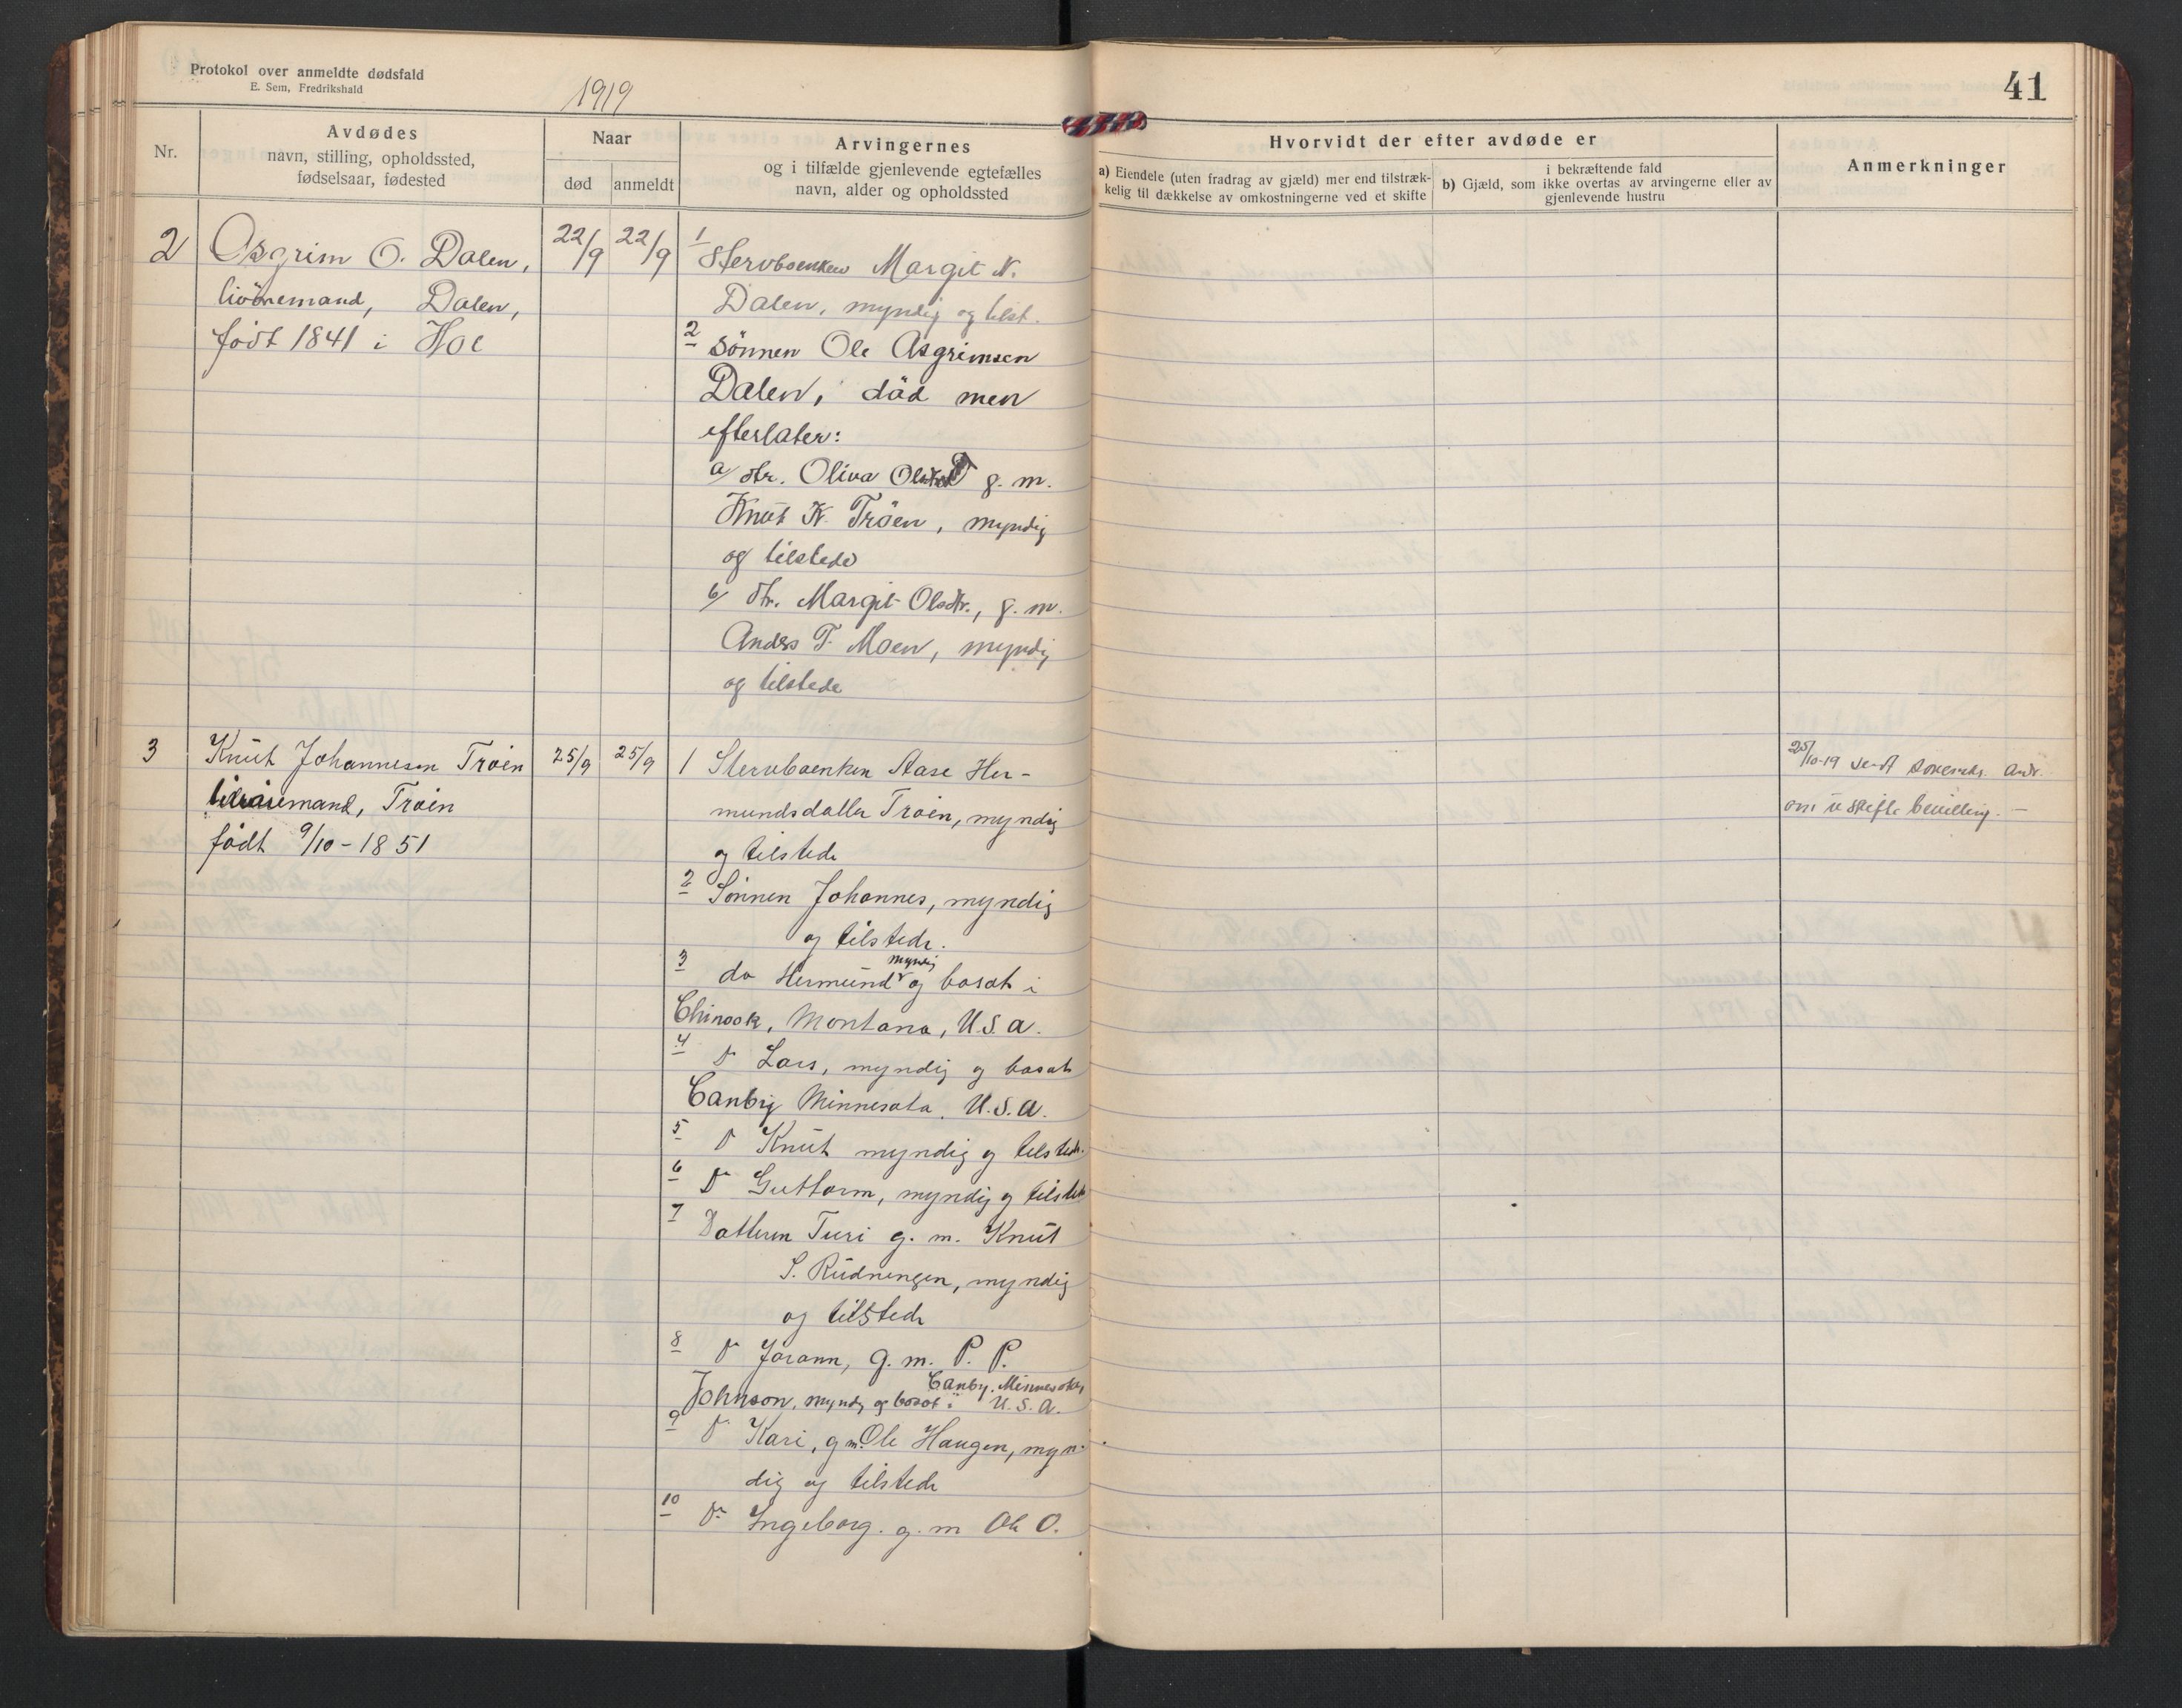 Protokol over anmeldte dødsfald
E. Sem, Fredrikshald
1919
41
Nr.
Avdødes
navn, stilling, opholdssted,
fødselsaar, fødested
Naar
død
anmeldt
Arvingernes
og i tilfælde gjenlevende egtefælles
navn, alder og opholdssted
Hvorvidt der efter avdøde er
a) Eiendele (uten fradrag av gjæld) mer end tilstræk-
kelig til dækkelse av omkostningerne ved et skifte
i bekræftende fald
b) Gjæld, som ikke overtas av arvingerne eller av
gjenlevende hustru
Anmerkninger
2
Asgrim O. Dalen,
liöremand, Dalen,
født 1841 i Hol
22/9
22/9
1
Stervboenken Margit N.
Dalen, myndig og tilst.
2
Sønnen Ole Asgrimsen
Dalen, død men
efterlater:
a/ dtr. Oliva g. m.
Knut K. Tröen, myndig
og tilstede
b/ dtr. Margit Olsdtr., g. m.
Anders T. Moen, myndig
og tilstede
3
Knut Johannesen Troen
Troen
født 9/10-1851
25/9
25/9
1 Stervboenken Aase Her-
mundsdatter Troen, myndig
og tilstede
2
Sønnen Johannes, myndig
og tilstede.
3
myndig
do Hermund og bosat i
Chinook, Montana, U.S.A.
4
do Lars, myndig og bosat
Canby Minnesota. U.S.A.
5
do Knut myndig og tilstede.
6
do Guttorm, myndig og tilstede
7
Datteren Turi g. m. Knut
S. Rudningen, myndig
og tilstede
8
do Jorann, g. m. P. P.
Canby. Minnesota,
Johnson, myndig og bosat i U.S.A.
9
do Kari, g. m. Ole Haugen, myn-
dig og tilstede
10
do Ingeborg. g. m Ole O.
25/10-19 sendt
om uskifte bevilling. —